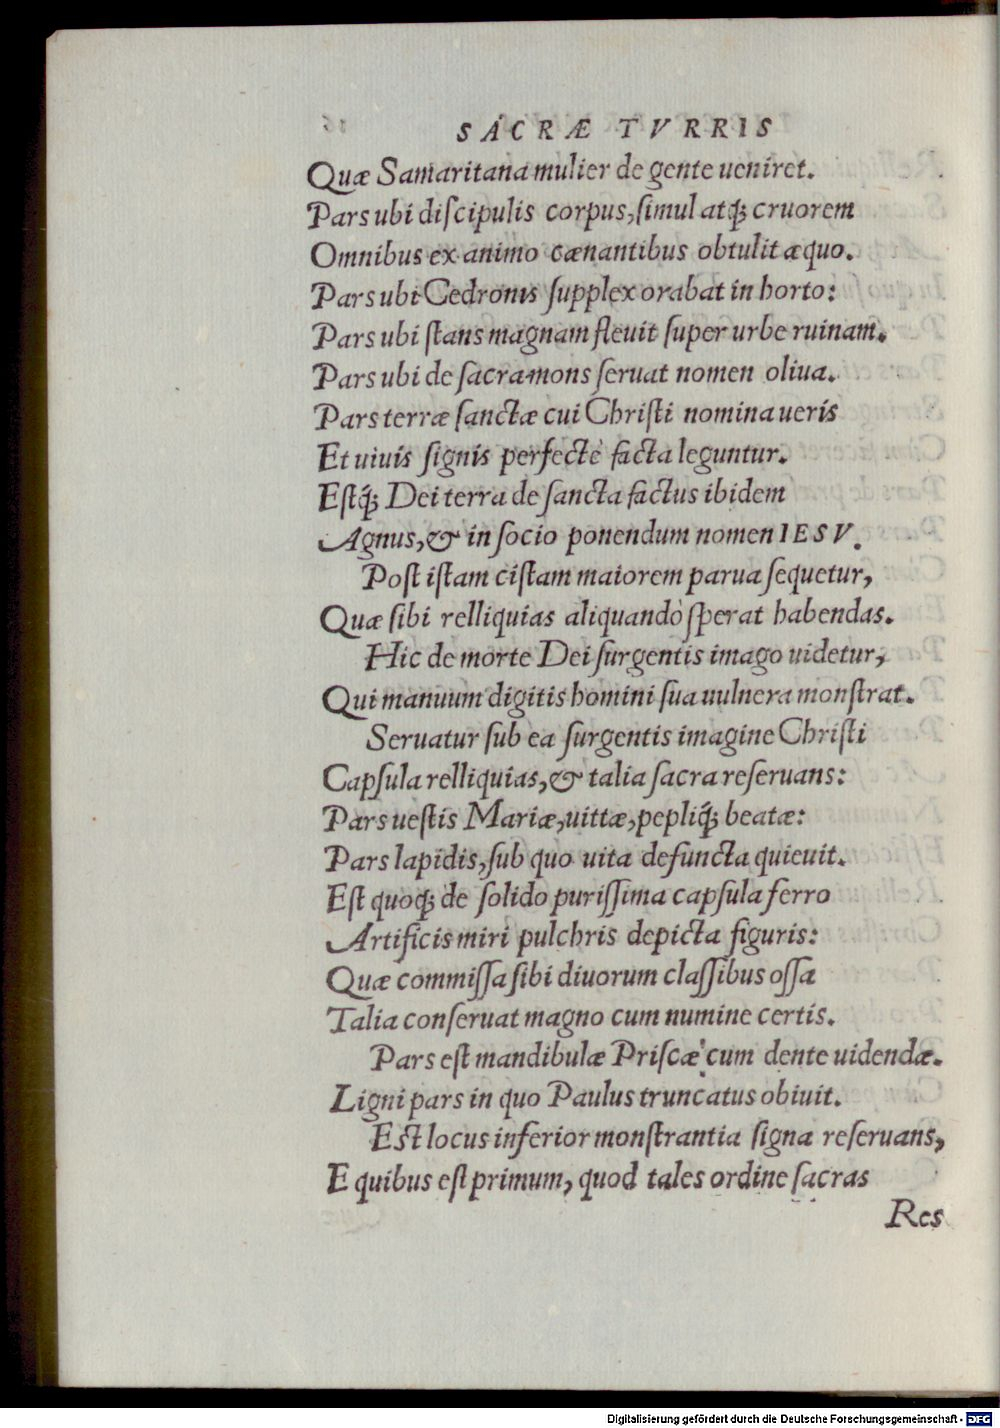 SACRÆ TVRRIS
Quæ Samaritana mulier de gente ueniret.
Pars ubi diſcipulis corpus, ſimul atq́; cruorem
Omnibus ex animo cænantibus obtulit æquo.
Pars ubi Cedronis ſupplex orabat in horto:
Pars ubi ſtans magnam fleuit ſuper urbe ruinam.
Pars ubi de ſacra mons ſeruat nomen oliua.
Pars terræ ſanctæ cui Chriſti nomina ueris
Et uiuis ſignis perfectè facta leguntur.
Eſtq́; Dei terra de ſancta factus ibidem
Agnus, & in ſocio ponendum nomen IESV.
Poſt iſtam ciſtam maiorem parua ſequetur,
Quæ ſibi relliquias aliquandò ſperat habendas.
Hic de morte Dei ſurgentis imago uidetur,
Qui manuum digitis homini ſua uulnera monſtrat.
Seruatur ſub ea ſurgentis imagine Chriſti
Capſula relliquias, & talia ſacra reſeruans:
Pars ueſtis Mariæ, uittæ, pepliq́; beatæ:
Pars lapidis, ſub quo uita defuncta quieuit.
Eſt quoq; de ſolido puriſſima capſula ferro
Artificis miri pulchris depicta figuris:
Quæ commiſſa ſibi diuorum claſſibus oſſa
Talia conſeruat magno cum numine certis.
Pars eſt mandibulæ Priſcæ cum dente uidendæ.
Ligni pars in quo Paulus truncatus obiuit.
Eſt locus inferior monſtrantia ſigna reſeruans,
E quibus eſt primum, quod tales ordine ſacras
Res
Digitalisierung gefördert durch die Deutsche Forschungsgemeinschaft - DFG